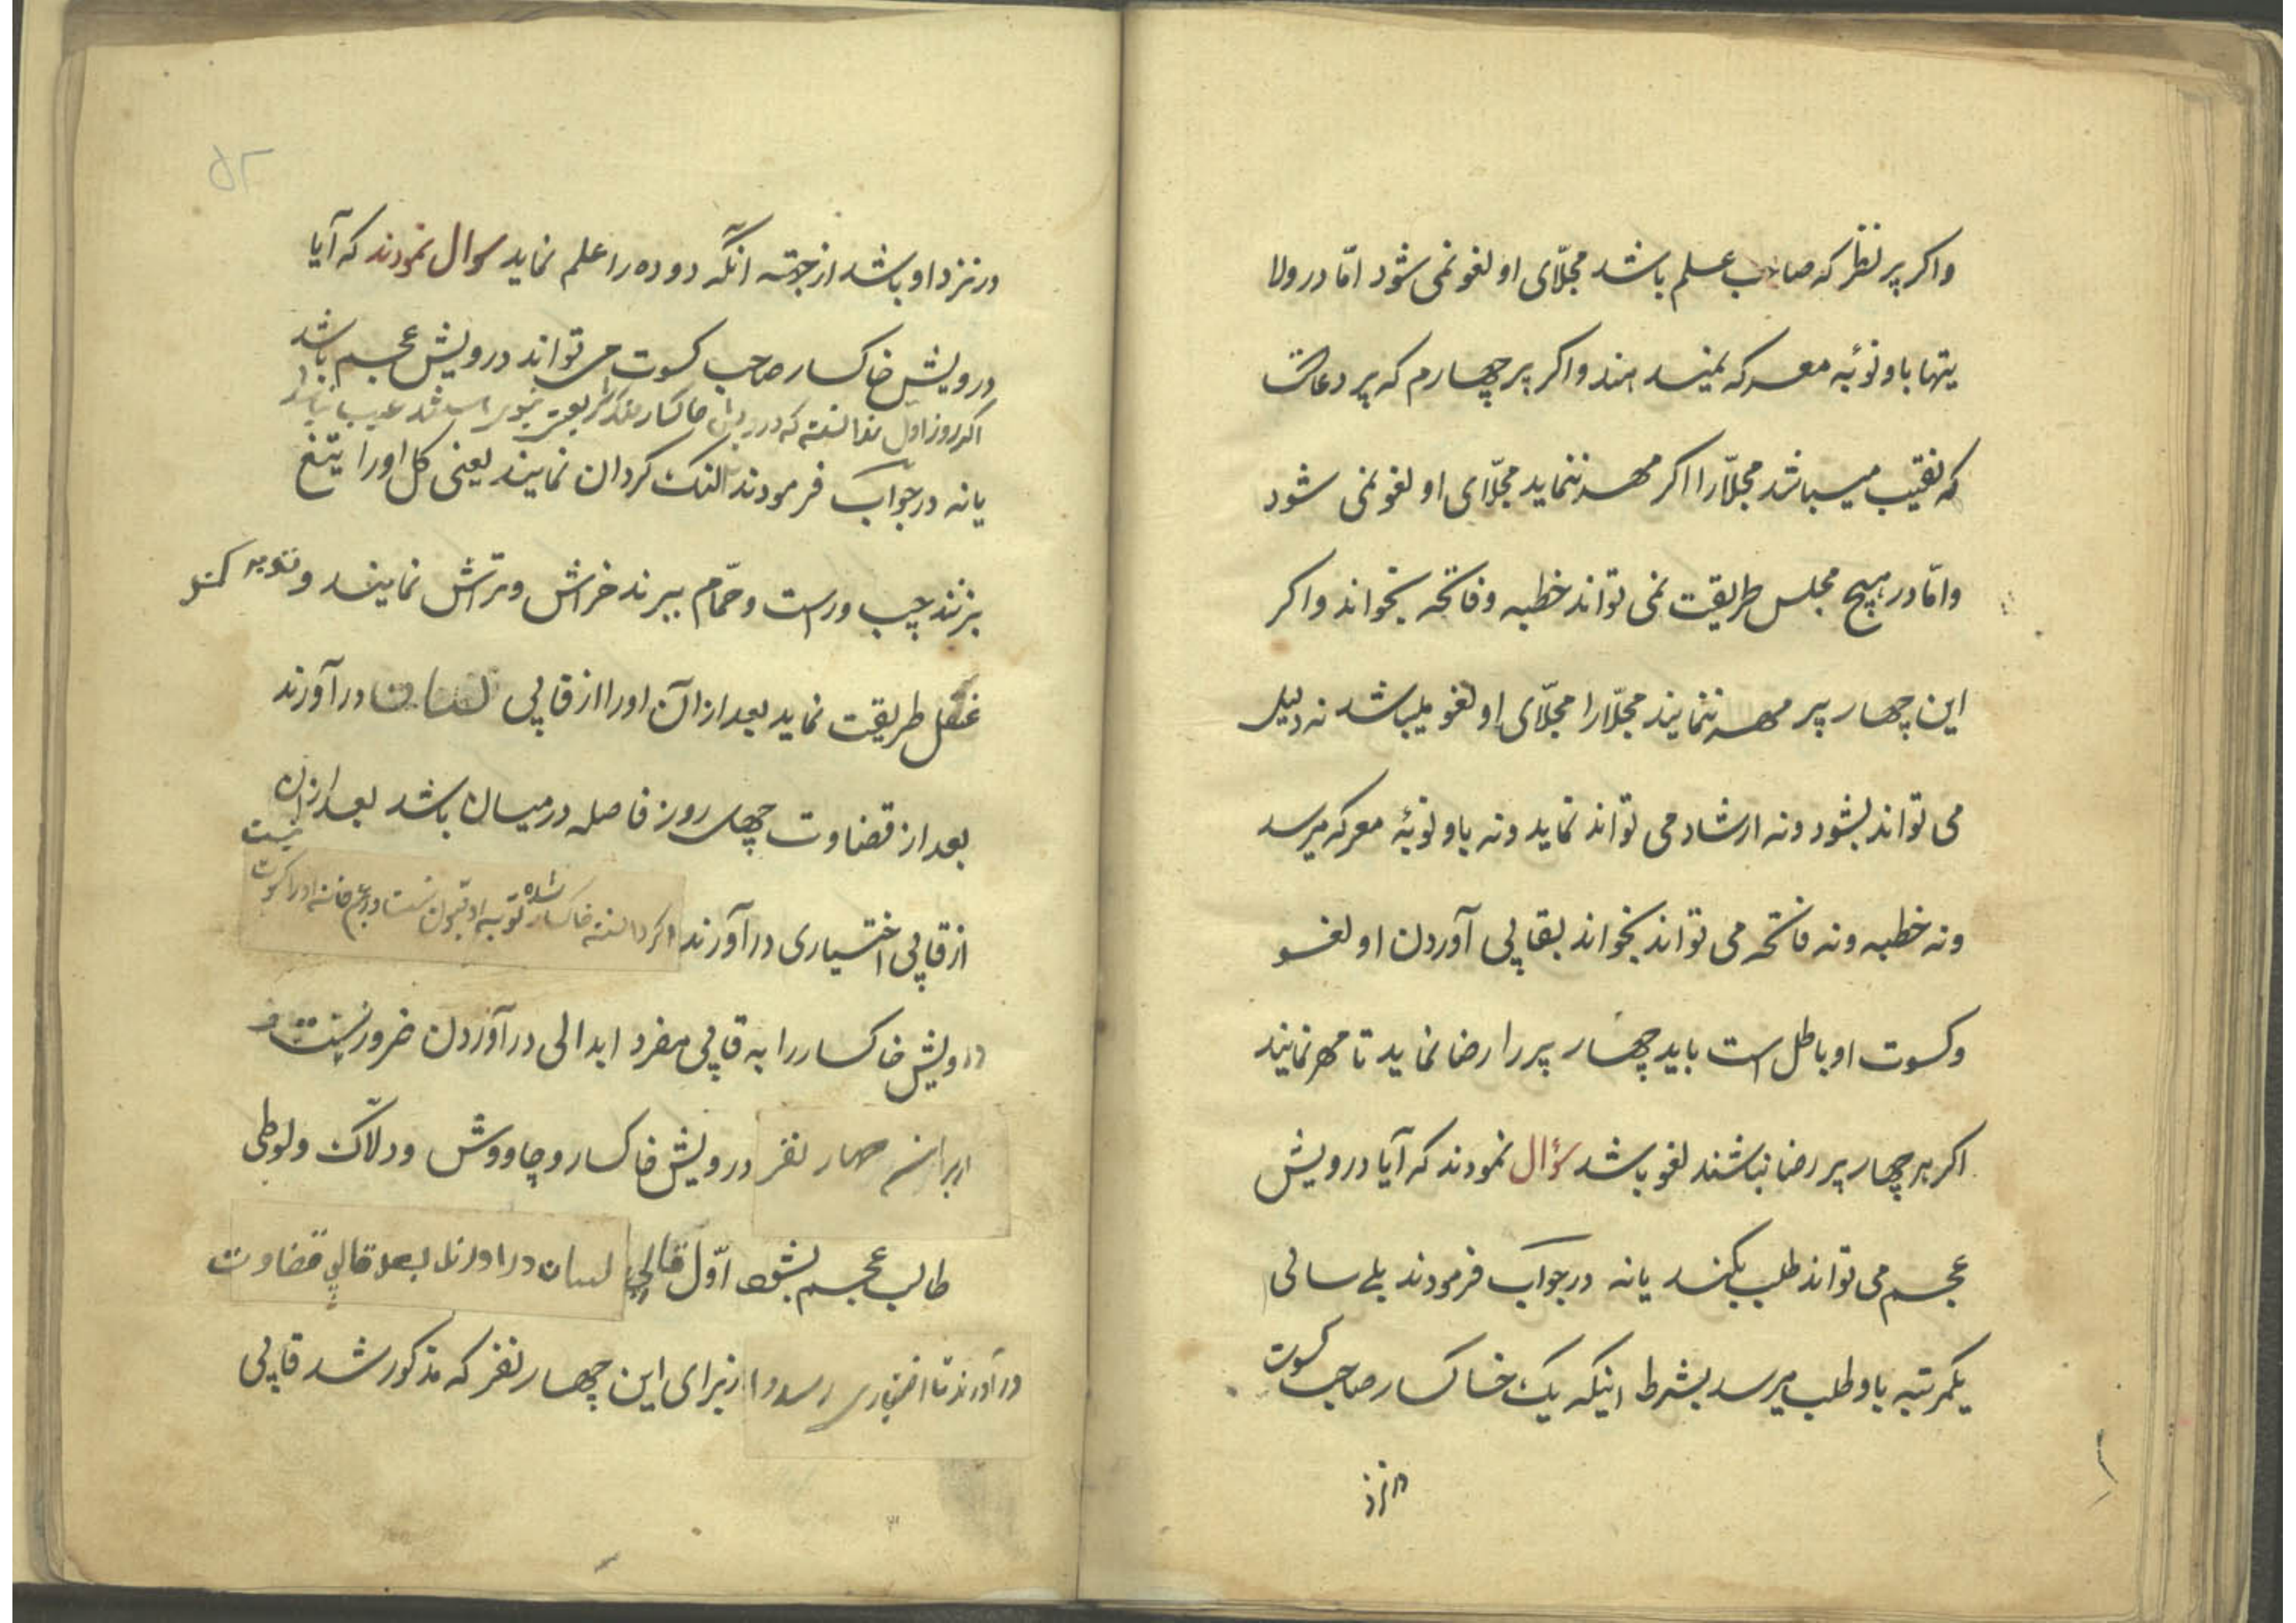 واکر پر نظر که صاحب علم باشد مجلّای او لغو نمی شود امّا در ولا
یتها باو نوبٔه معرکه نمیدهند واکر پر چهارم که پر دعاست
که نقیب میباشد مجلّا را اکر مهر ننماید مجلّای او لغو نمی شود
وامّا در هیچ مجلس طریقت نمی تواند خطبه وفاتحه بخواند واکر
این چهار پر مهر ننمایند مجلّا را مجلّای او لغو میباشد نه دلیل
می تواند بشود ونه ارشاد می تواند نماید ونه باو نوبٔه معرکه میرسد
ونه خطبه ونه فاتحه می تواند بخواند بقاپی آوردن او لغو
وکسوت او باطل است باید چهار پر را رضا نماید تا مهر نمایند
اکر هر چهار پر رضا نباشند لغو باشد سؤال نمودند که آیا درویش
عجم می تواند طلب بکند یا نه در جواب فرمودند بلے سالی
یکمرتبه باو طلب میرسد بشرط اینکه یک خاکسار صاحب کسوت
در نزد
۵۲
در نزد او باشد از جهته آنکه دوده را علم نماید سوال نمودند که آیا
درویش خاکسار صاحب کسوت می تواند درویش عجم باشد
اکر روز اول ندانسته که درویش خاکسار عیب نباشد
یا نه در جواب فرمودند النک کردان نمایند یعنی کل او را تیغ
بزنند چپ وراست وحمّام ببرند خراش وتراش نمایند وتوبه کند
غسل طریقت نماید بعد از آن او را از قاپی لسان در آورند
بعد از قضاوت چهل روز فاصله در میان باشد بعد از آن
از قاپی اختیاری در آورند اکر دانسته خاکسار شده توبه او قبول نیست
درویش خاکسار را به قاپی مفرد ابدالی در آوردن ضرور نیست
چهار نفر درویش خاکسار وچاووش ودلّاک ولوطی
طالب عجم بشود اوّل قاپی لسان در اورند بعد قاپی قضاوت
در آورند تا اختیاری زیرای این چهار نفر که مذکور شد قاپی